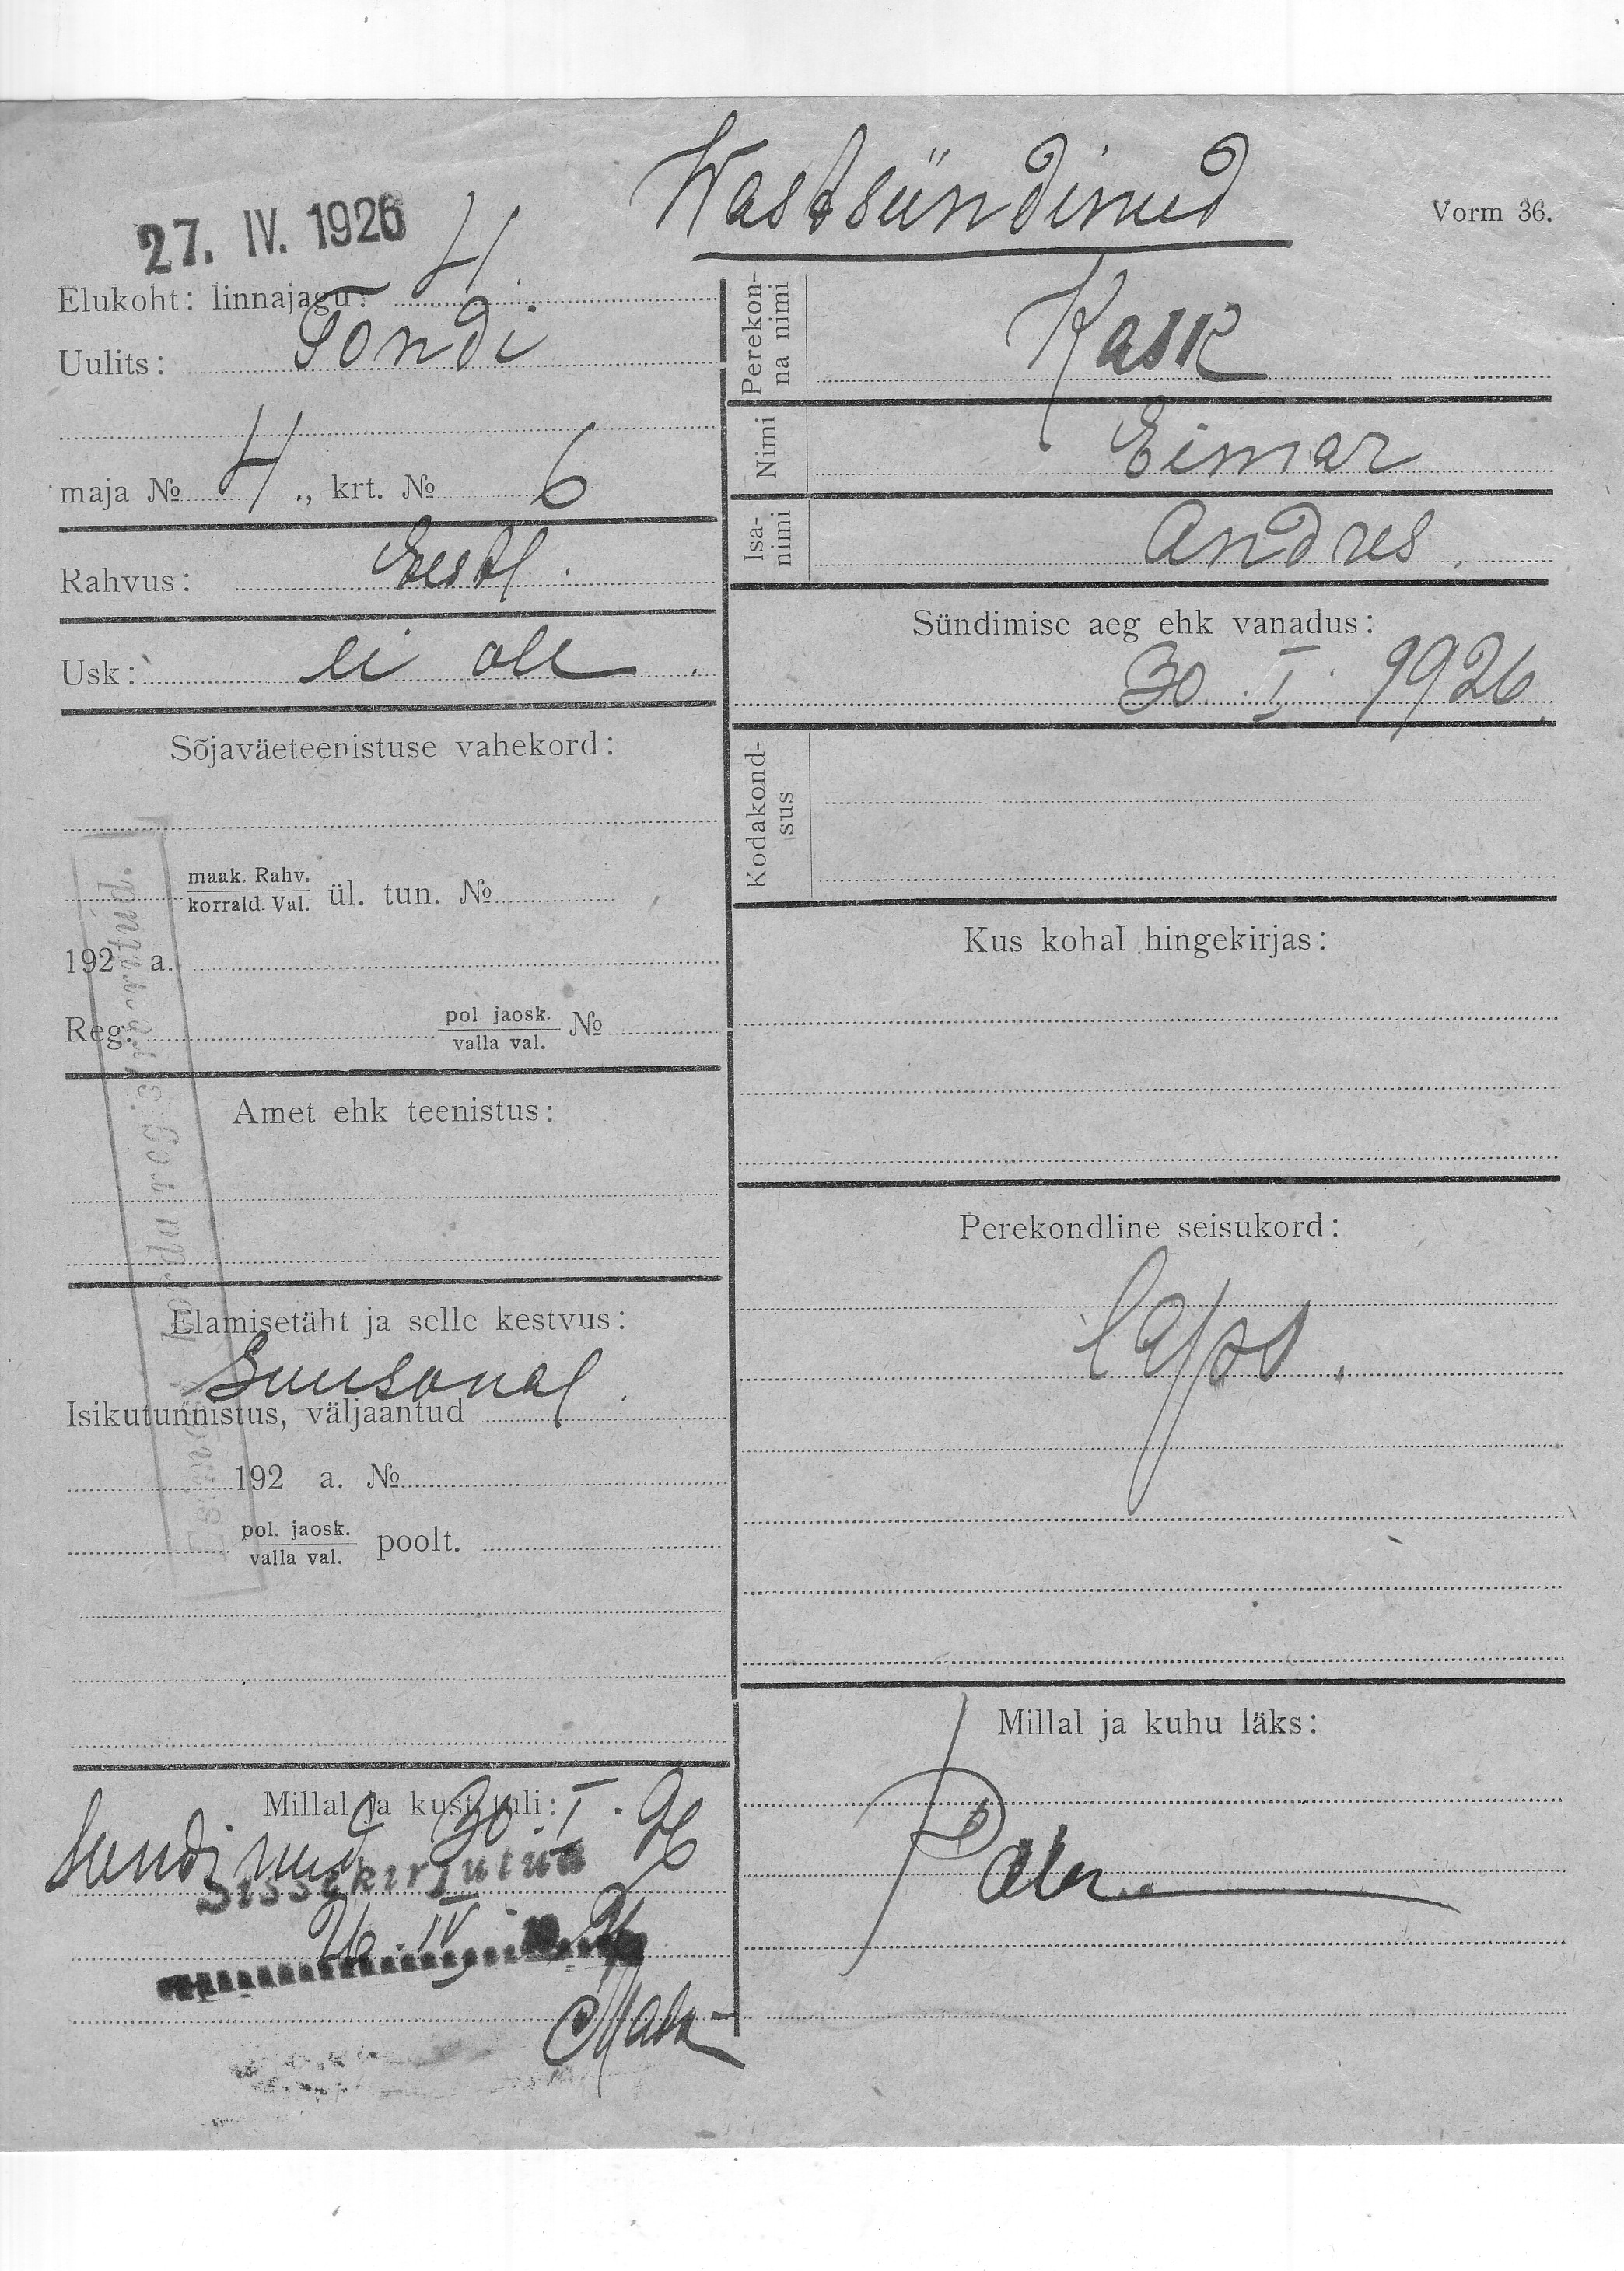 Wastsündinud
Vorm 36.
27. IV. 1926
Elukoht: linnajagu: 4.
Uulits: Tondi
maja № 4., krt. № 6
Rahvus: Eestl.
Usk: ei ole.
Sõjaväeteenistuse vahekord:
maak. Rahv.
korrald. Val. ül. tun. №
192 a.
Reg. pol jaosk.
valla val. №
Amet ehk teenistus:
Elamisetäht ja selle kestvus:
Suusanal.
Isikutunnistus, väljaantud
192 a. №
pol. jaosk.
valla val. poolt.
Millal ja kust tuli:
Sündinud 30. I. 26
Sissekirjutud
26. IV. 26
Perekon-
na nimi Kask
Nimi Eimar
Isa-
nimi Andres.
Sündimise aeg ehk vanadus:
30. I. 1926.
Kodakond-
sus
Kus kohal hingekirjas:
Perekondline seisukord:
Laps.
Millal ja kuhu läks: